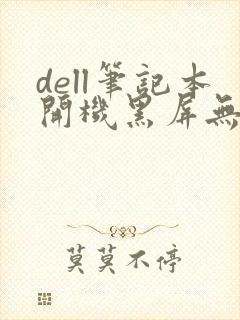 dell筆記本
開機黑屏無
莫莫不停